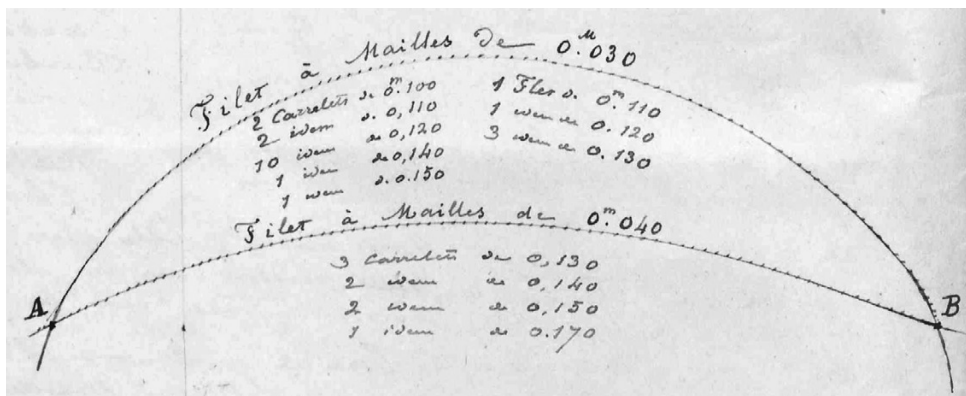 Filet à Mailles de 0.M030
2 Carrelets de 0m.100
2 idem d. 0,110
10 idem de 0,120
1 idem de 0,140
1 idem d. 0.150
1 Flet de 0m.110
1 idem de 0.120
3 idem de 0.130
Filet à Mailles de 0m.040
3 Carrelets de 0,130
2 idem de 0,140
2 idem de 0,150
1 idem de 0.170
A
B